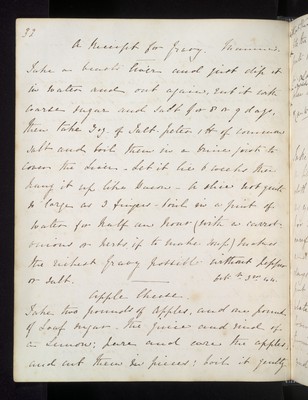 22
A Receipt for Gravy.
Take a beasts liver and just dip it
in water and out again, rub it with
coarse sugar and salt for 8 or 9 days,
then take 3 oz. of Salt-petre, of common
salt and boil them in a brine just to
cover the liver - let it lie 6 weeks then
hang it up like bacon - A slice not quite
as large as 3 fingers - boil in a pint of
water for half an hour (with a carrot-
onions or herbs if to make soup) makes
the richest Gravy possible without pepper
or salt. 44.
Apple Cheese.
Take two pounds of Apples, and one pound
of Loaf sugar - the juice and rind of
a Lemon; pare and core the apples,
and cut them in pieces; boil it gently